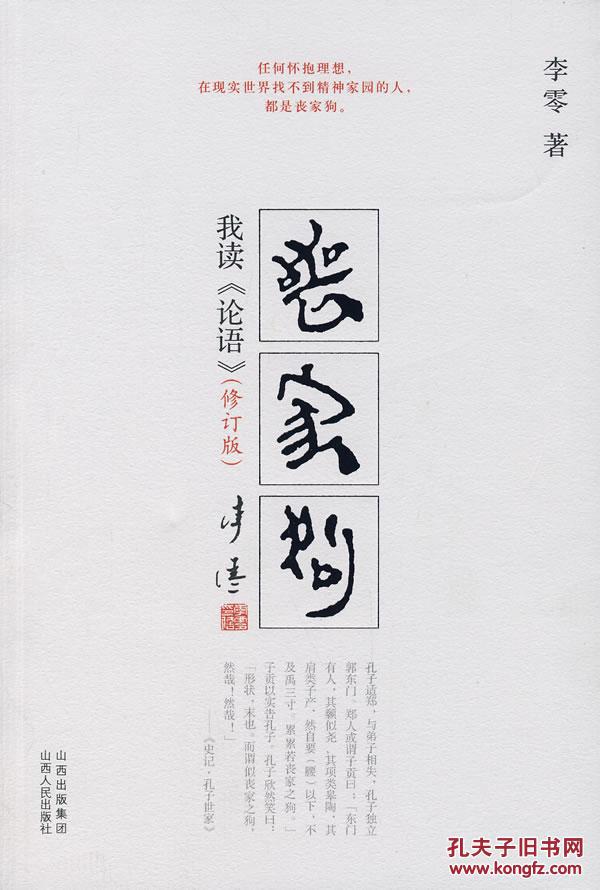 任何怀抱理想，
在现实世界找不到精神家园的人，
都是丧家狗。
李零 著
丧家狗
我读《论语》（修订版）
孔子适郑，与弟子相失，孔子独立
郭东门。郑人或谓子贡曰：「东门
有人，其颡似尧，其项类皋陶，其
肩类子产，然自要（腰）以下，不
及禹三寸，累累若丧家之狗。」
子贡以实告孔子。孔子欣然笑曰：
「形状，末也。而谓似丧家之狗，
然哉！然哉！」
——《史记·孔子世家》
山西出版集团
山西人民出版社
孔夫子旧书网
www.kongfz.com